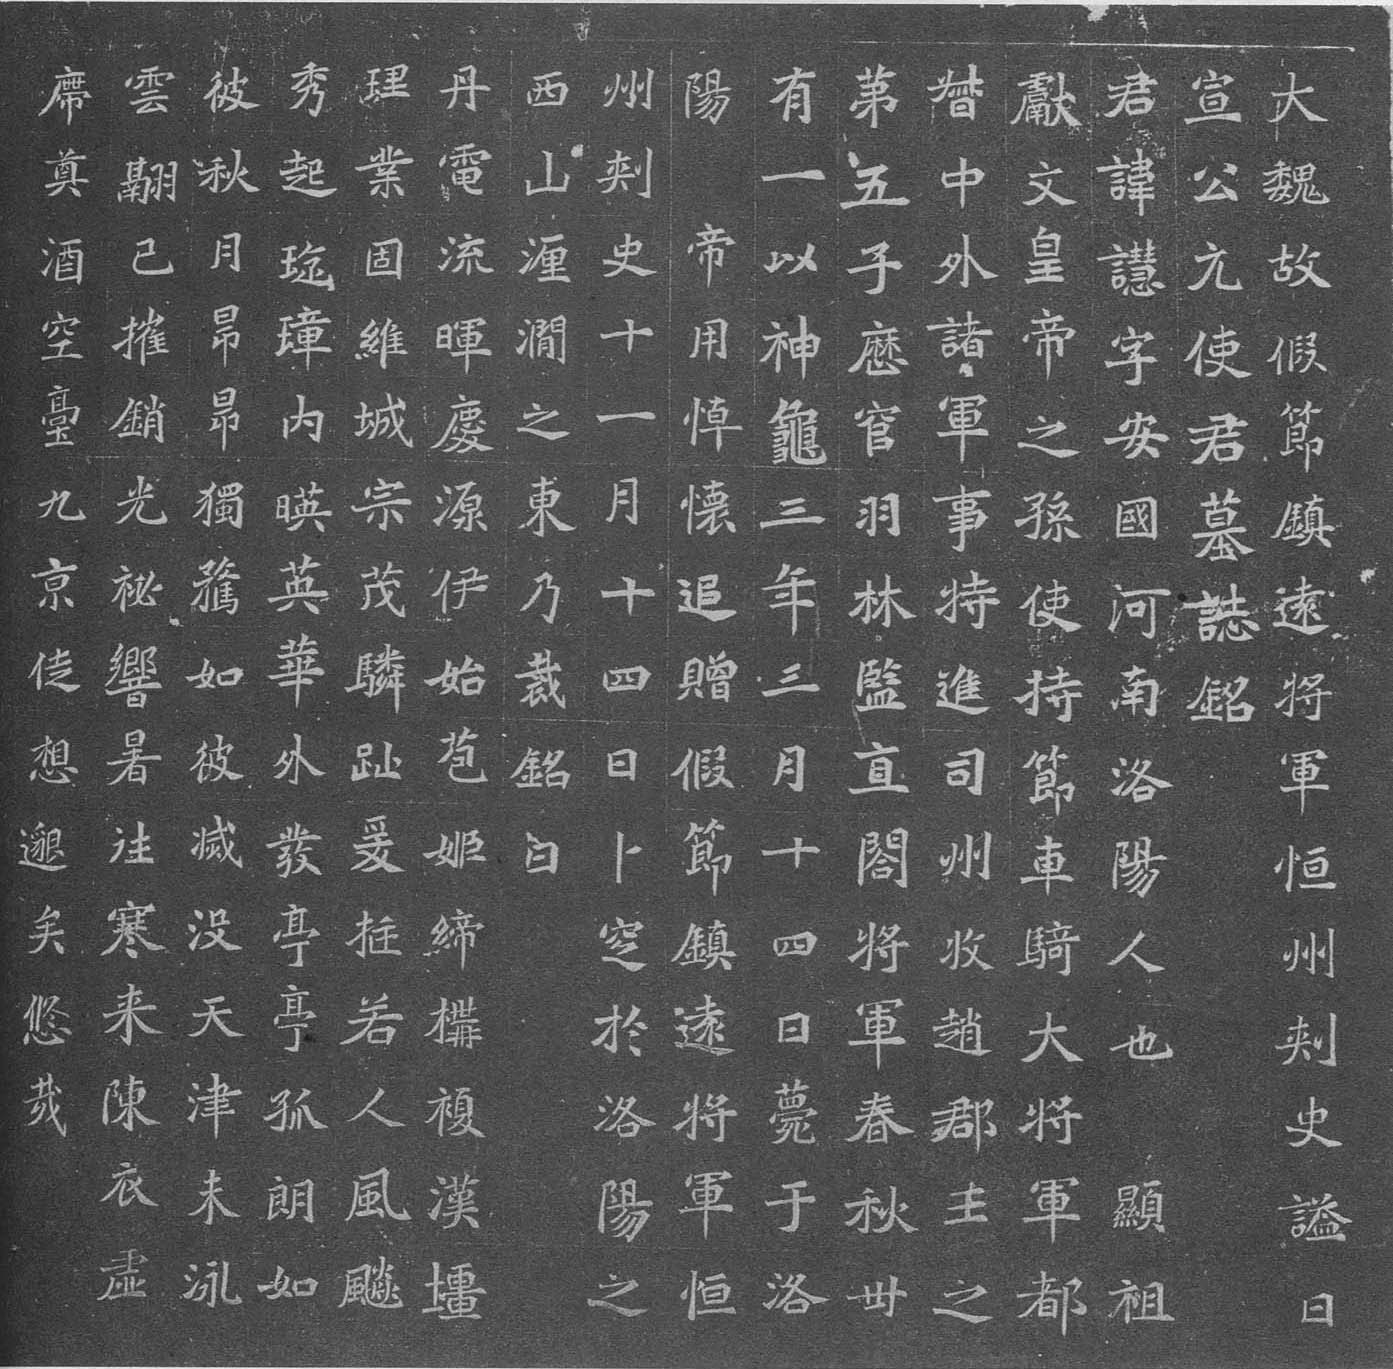 大魏故假節鎮遠將軍恒州刾史謚曰
宣公元使君墓誌銘
君諱譿字安國河南洛陽人也 顯祖
獻文皇帝之孫使持節車騎大將軍都
督中外諸軍事特進司州牧趙郡主之
苐五子歷官羽林監直閤將軍春秋丗
有一以神龜三年三月十四日薨于洛
陽 帝用悼懷追贈假節鎮遠將軍恒
州刾史十一月十四日卜窆於洛陽之
西山湹澗之東乃裁銘曰
丹電流暉慶源伊始苞姬締構複漢壃
理業固維城宗茂驎趾爰挺若人風飈
秀起珤璋内暎英華外發亭亭孤朗如
彼秋月昂昂獨鶩如彼滅没天津未泳
雲翮已摧銷光祕響暑往寒来陳衣虛
席奠酒空臺九京徒想邈矣悠哉